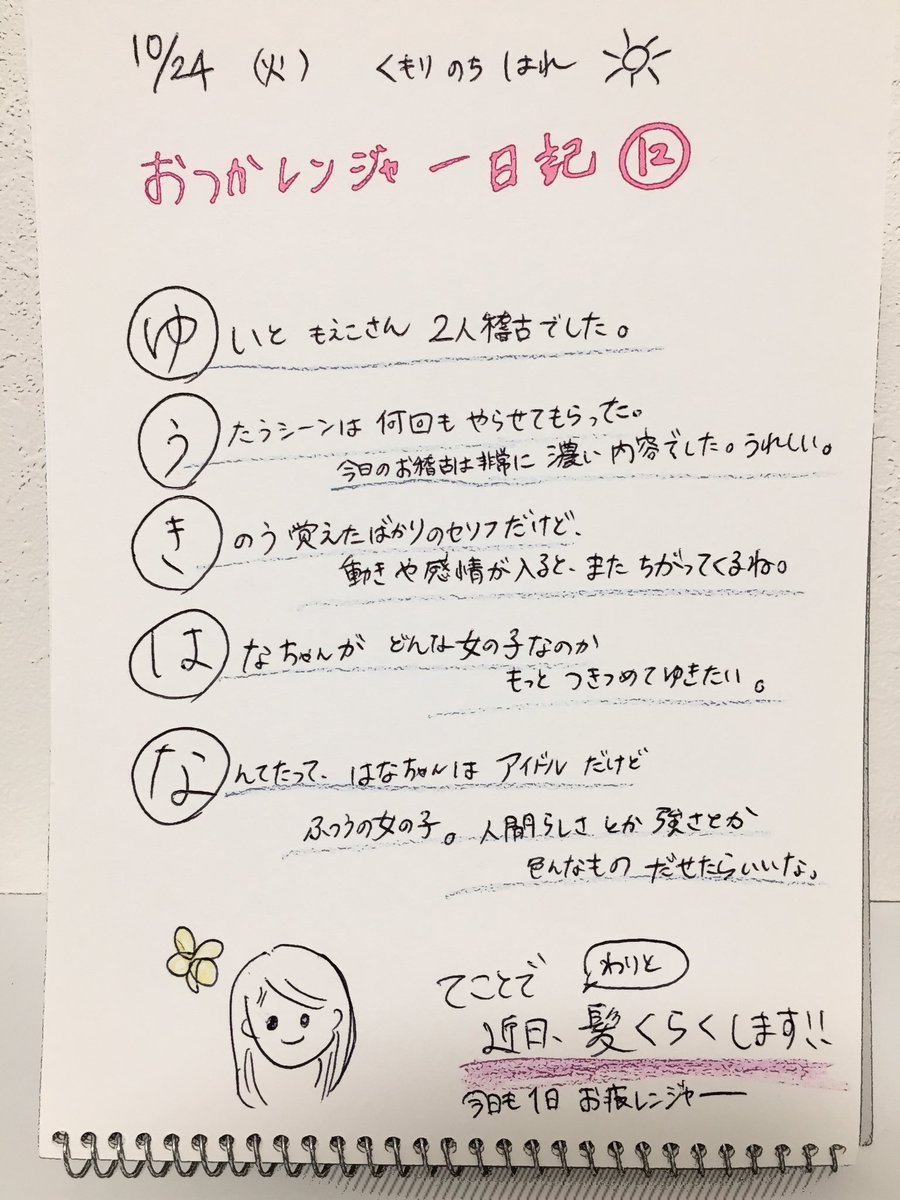 10/24 (火) くもりのち はれ
おつかレンジャー日記 ⑫
ゆいと もえこさん 2人稽古でした。
うたうシーンは 何回も やらせてもらった。
今日のお稽古は非常に 濃い 内容でした。うれしい。
きのう 覚えたばかりのセリフだけど、
動きや感情が入ると、また ちがってくるね。
はなちゃんが どんな女の子なのか
もっと つきつめてゆきたい。
なんてたって、はなちゃんは アイドル だけど
ふつうの女の子。人間らしさ とか 強さとか
色んなもの だせたらいいな。
てことで わりと
近日、髪くらくします!!
今日も1日 お疲レンジャー